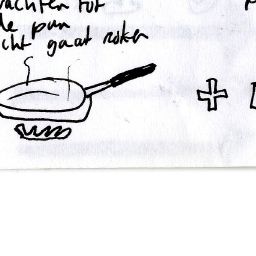 wachten tot
de pan
cht gaat roken
+